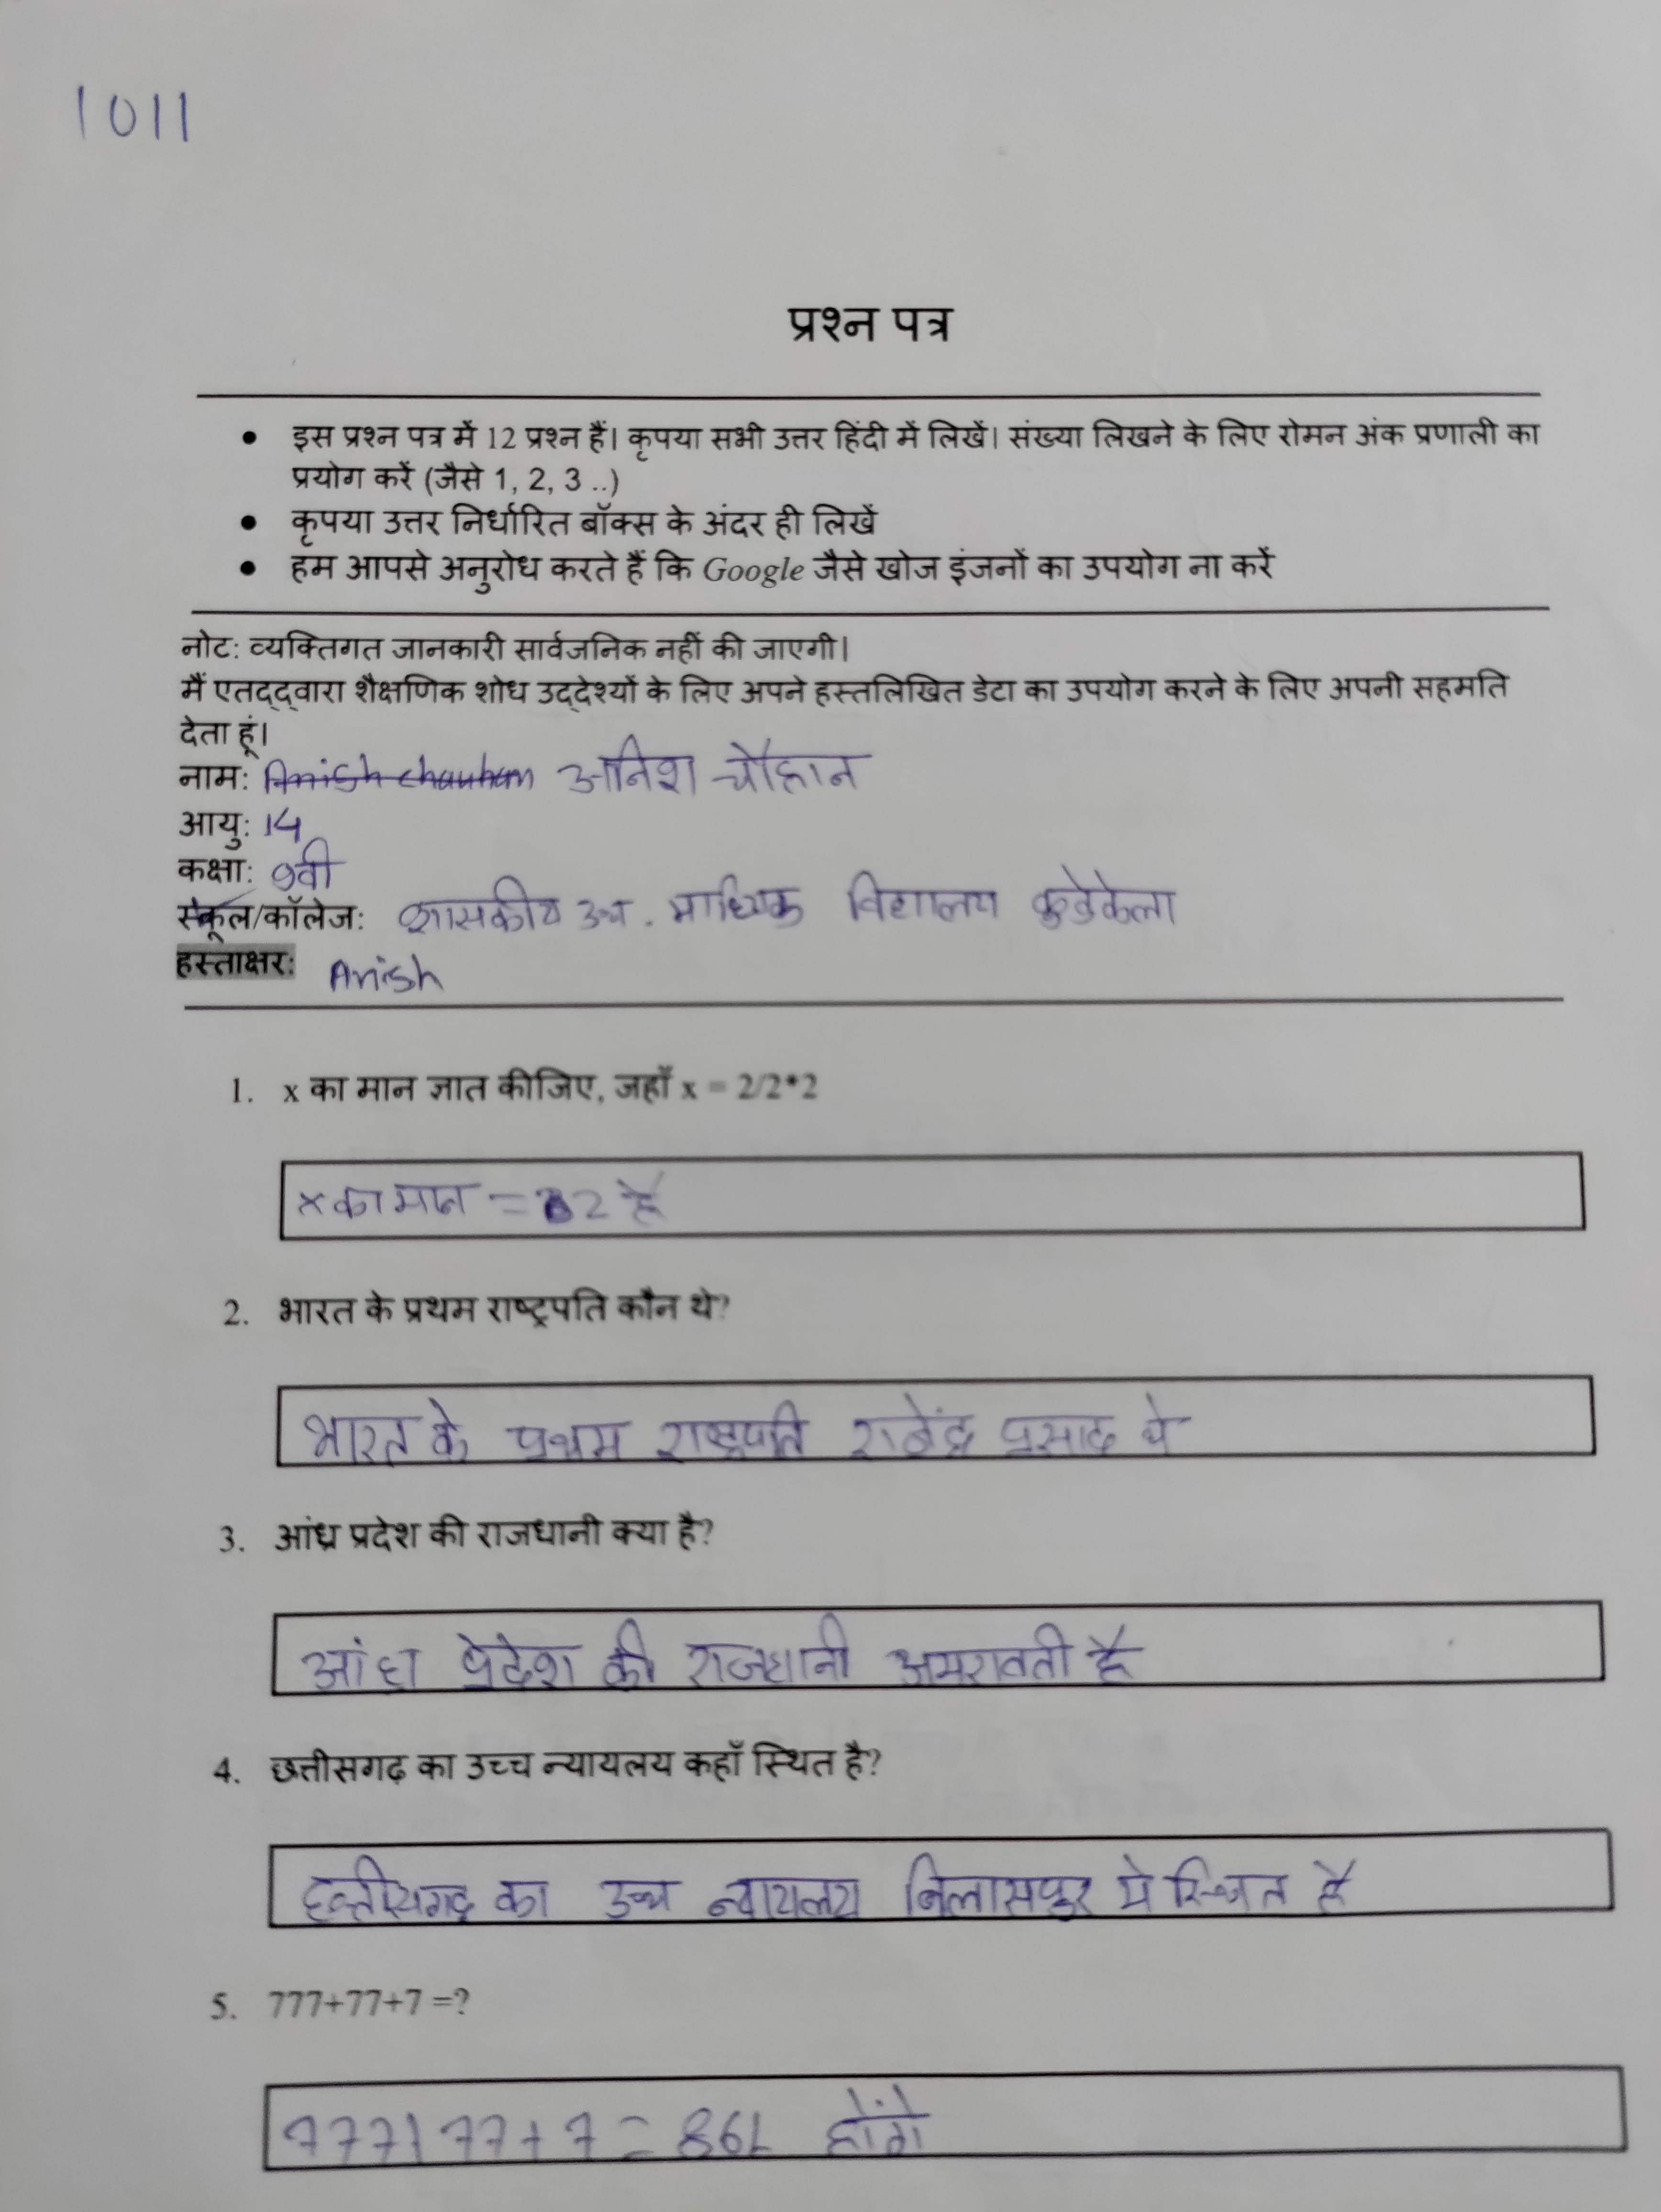 1011
प्रश्न पत्र
• इस प्रश्न पत्र में 12 प्रश्न हैं। कृपया सभी उत्तर हिंदी में लिखें। संख्या लिखने के लिए रोमन अंक प्रणाली का
प्रयोग करें (जैसे 1, 2, 3 ..)
• कृपया उत्तर निर्धारित बॉक्स के अंदर ही लिखें
• हम आपसे अनुरोध करते हैं कि Google जैसे खोज इंजनों का उपयोग ना करें
नोट: व्यक्तिगत जानकारी सार्वजनिक नहीं की जाएगी।
मैं एतद्द्वारा शैक्षणिक शोध उद्देश्यों के लिए अपने हस्तलिखित डेटा का उपयोग करने के लिए अपनी सहमति
देता हूं।
नाम: Anish chauhan अनिश चौहान
आयु: 14
कक्षा: 9वी
स्कूल/कॉलेज: शासकीय उच. माध्यिक विद्यालय कुडेकेला
हस्ताक्षर: Anish
1. x का मान ज्ञात कीजिए, जहाँ x = 2/2*2
x का मान = 2 है
2. भारत के प्रथम राष्ट्रपति कौन थे?
भारत के प्रथम राष्ट्रपति राजेंद्र प्रसाद थे
3. आंध्र प्रदेश की राजधानी क्या है?
आंध्रा प्रेदेश की राजधानी अमरावती है
4. छत्तीसगढ़ का उच्च न्यायलय कहाँ स्थित है?
छत्तीसगढ़ का उच्च न्यायलय बिलासपुर मे स्थित है
5. 777+77+7 =?
777+77+7 = 861 होंगे